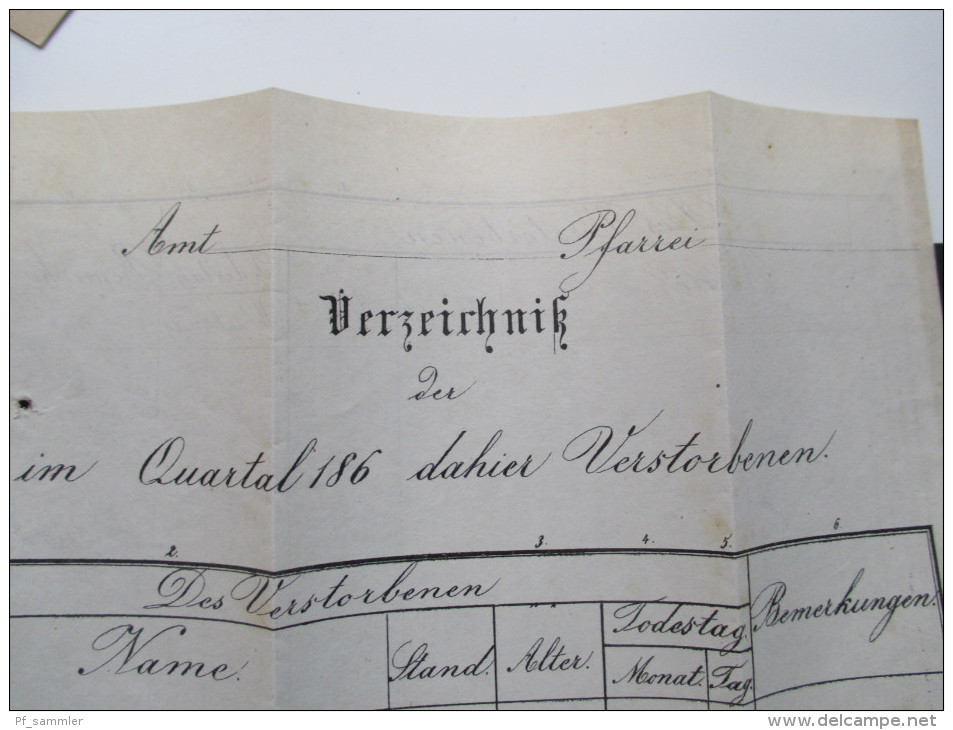 Amt Pfarrei
Verzeichniß
der
im Quartal 186 dahier Verstorbenen.
2. 3. 4. 5. 6.
Des Verstorbenen
Name. Stand. Alter. Todestag. Bemerkungen.
Monat. Tag.
Pf_sammler
www.delcampe.net